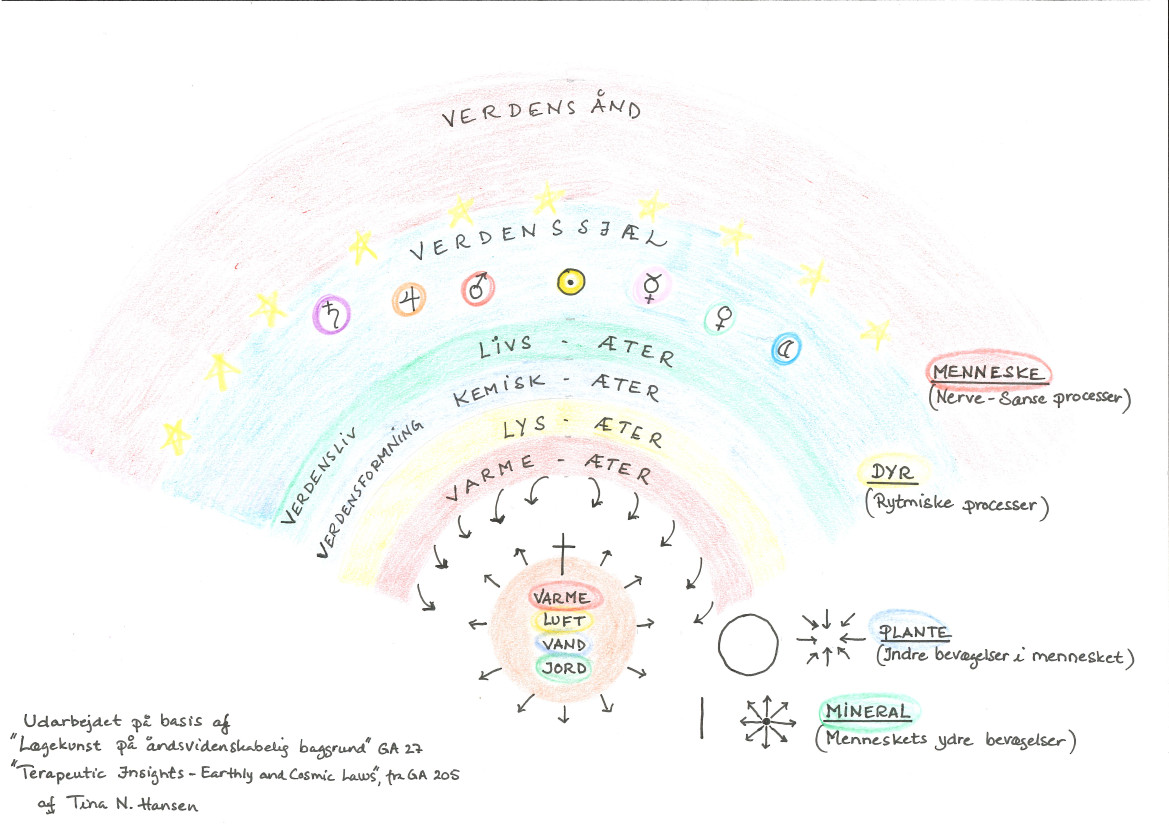 VERDENS ÅND
VERDENSSJÆL
LIVS - ÆTER
KEMISK - ÆTER
LYS - ÆTER
VARME - ÆTER
VERDENSLIV
VERDENSFORMNING
VARME
LUFT
VAND
JORD
MENNESKE
(Nerve-Sanse processer)
DYR
(Rytmiske processer)
PLANTE
(Indre bevægelser i mennesket)
MINERAL
(Menneskets ydre bevægelser)
Udarbejdet på basis af
"Lægekunst på åndsvidenskabelig baggrund" GA 27
"Terapeutic Insights - Earthly and Cosmic Laws", fra GA 205
af Tina N. Hansen